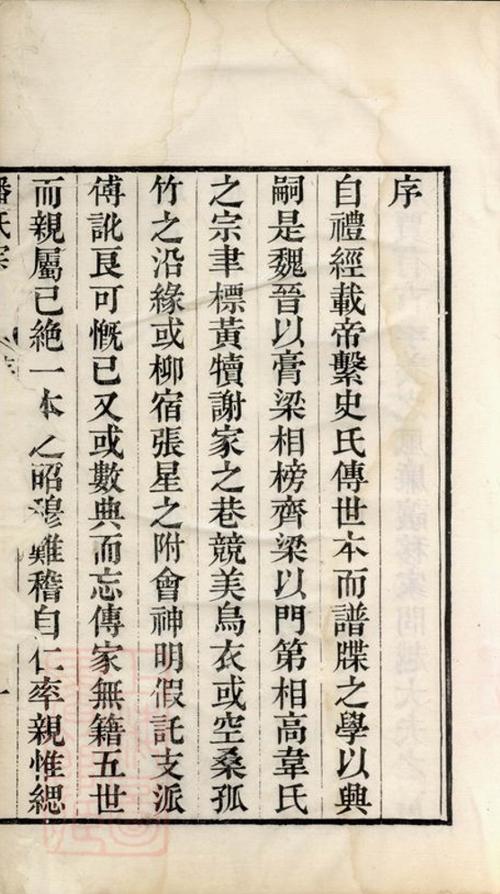 序
自禮經載帝繫史氏傳世本而譜牒之學以興
嗣是魏晉以膏粱相榜齊梁以門第相高韋氏
之宗聿標黃犢謝家之巷競美烏衣或空桑孤
竹之沿緣或柳宿張星之附會神明假託支派
傅訛良可慨已又或數典而忘傳家無籍五世
而親屬已絶一本之昭穆難稽自仁率親惟緦
潘氏宗
序
一